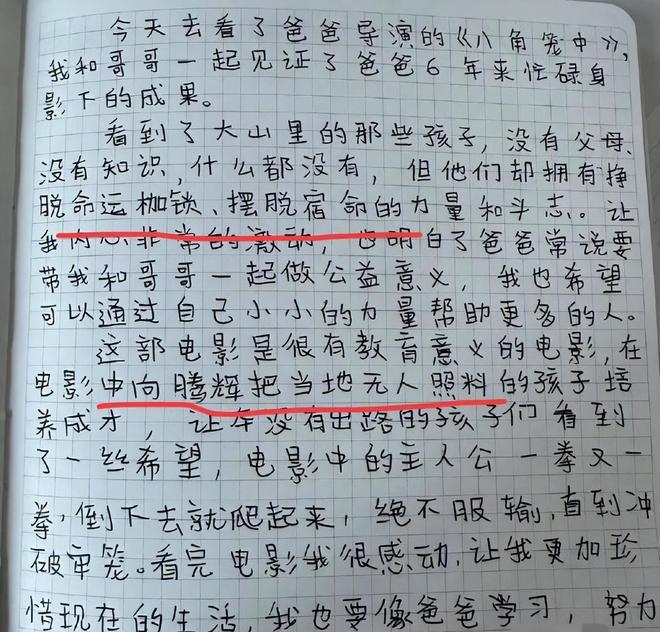 今天去看了爸爸导演的《八角笼中》,
我和哥哥一起见证了爸爸6年来忙碌身
影下的成果。
看到了大山里的那些孩子,没有父母、
没有知识,什么都没有,但他们却拥有挣
脱命运枷锁、摆脱宿命的力量和斗志。让
我内心非常的激动,也明白了爸爸常说要
带我和哥哥一起做公益意义,我也希望
可以通过自己小小的力量帮助更多的人。
这部电影是很有教育意义的电影,在
电影中向腾辉把当地无人照料的孩子培
养成才,让本没有出路的孩子们看到
了一丝希望,电影中的主人公一拳又一
拳,倒下去就爬起来,绝不服输,直到冲
破牢笼。看完电影我很感动,让我更加珍
惜现在的生活,我也要像爸爸学习,努力